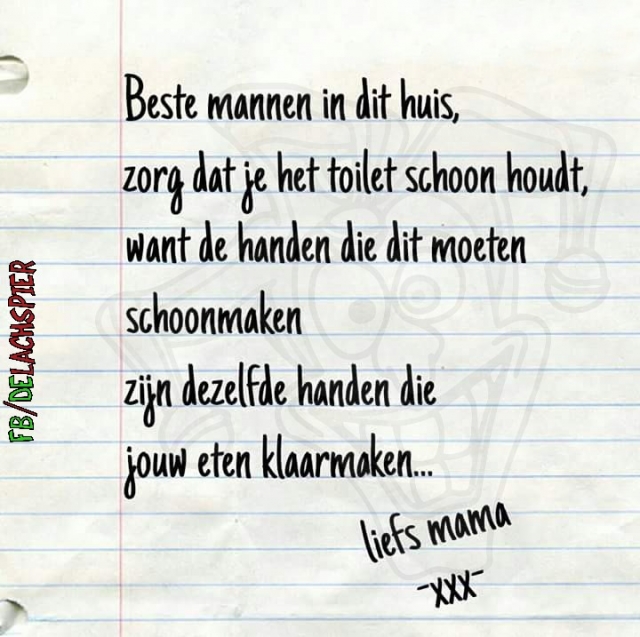 Beste mannen in dit huis,
zorg dat je het toilet schoon houdt,
want de handen die dit moeten
schoonmaken
zijn dezelfde handen die
jouw eten klaarmaken...
liefs mama
-xxx-
FB/DELACHSPIER